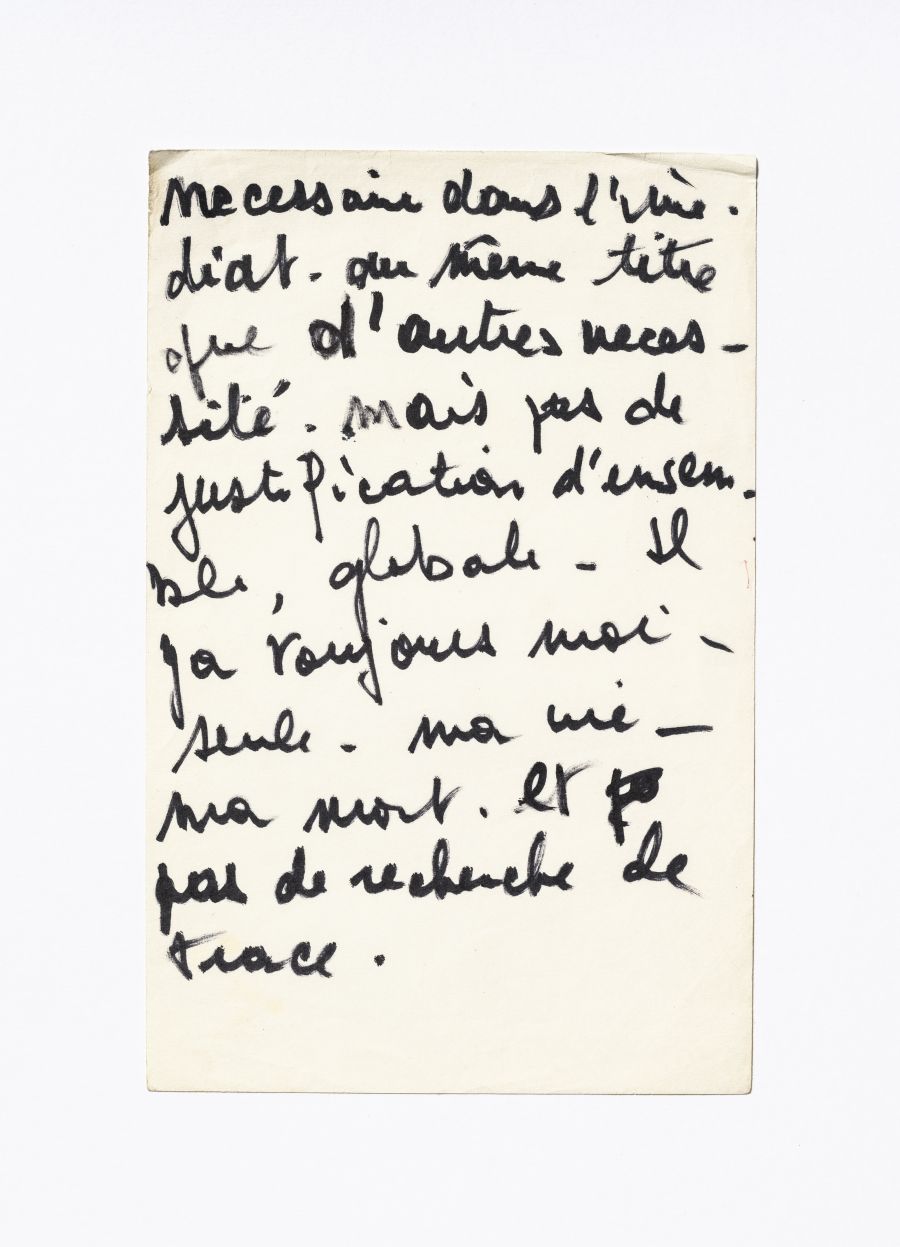 necessaire dans l'imé-
diat. au même titre
que d'autres neces-
sité. mais pas de
justification d'ensem-
ble, globale - Il
ya toujours moi -
seule. ma vie -
ma mort. et
pas de recherche de
trace.